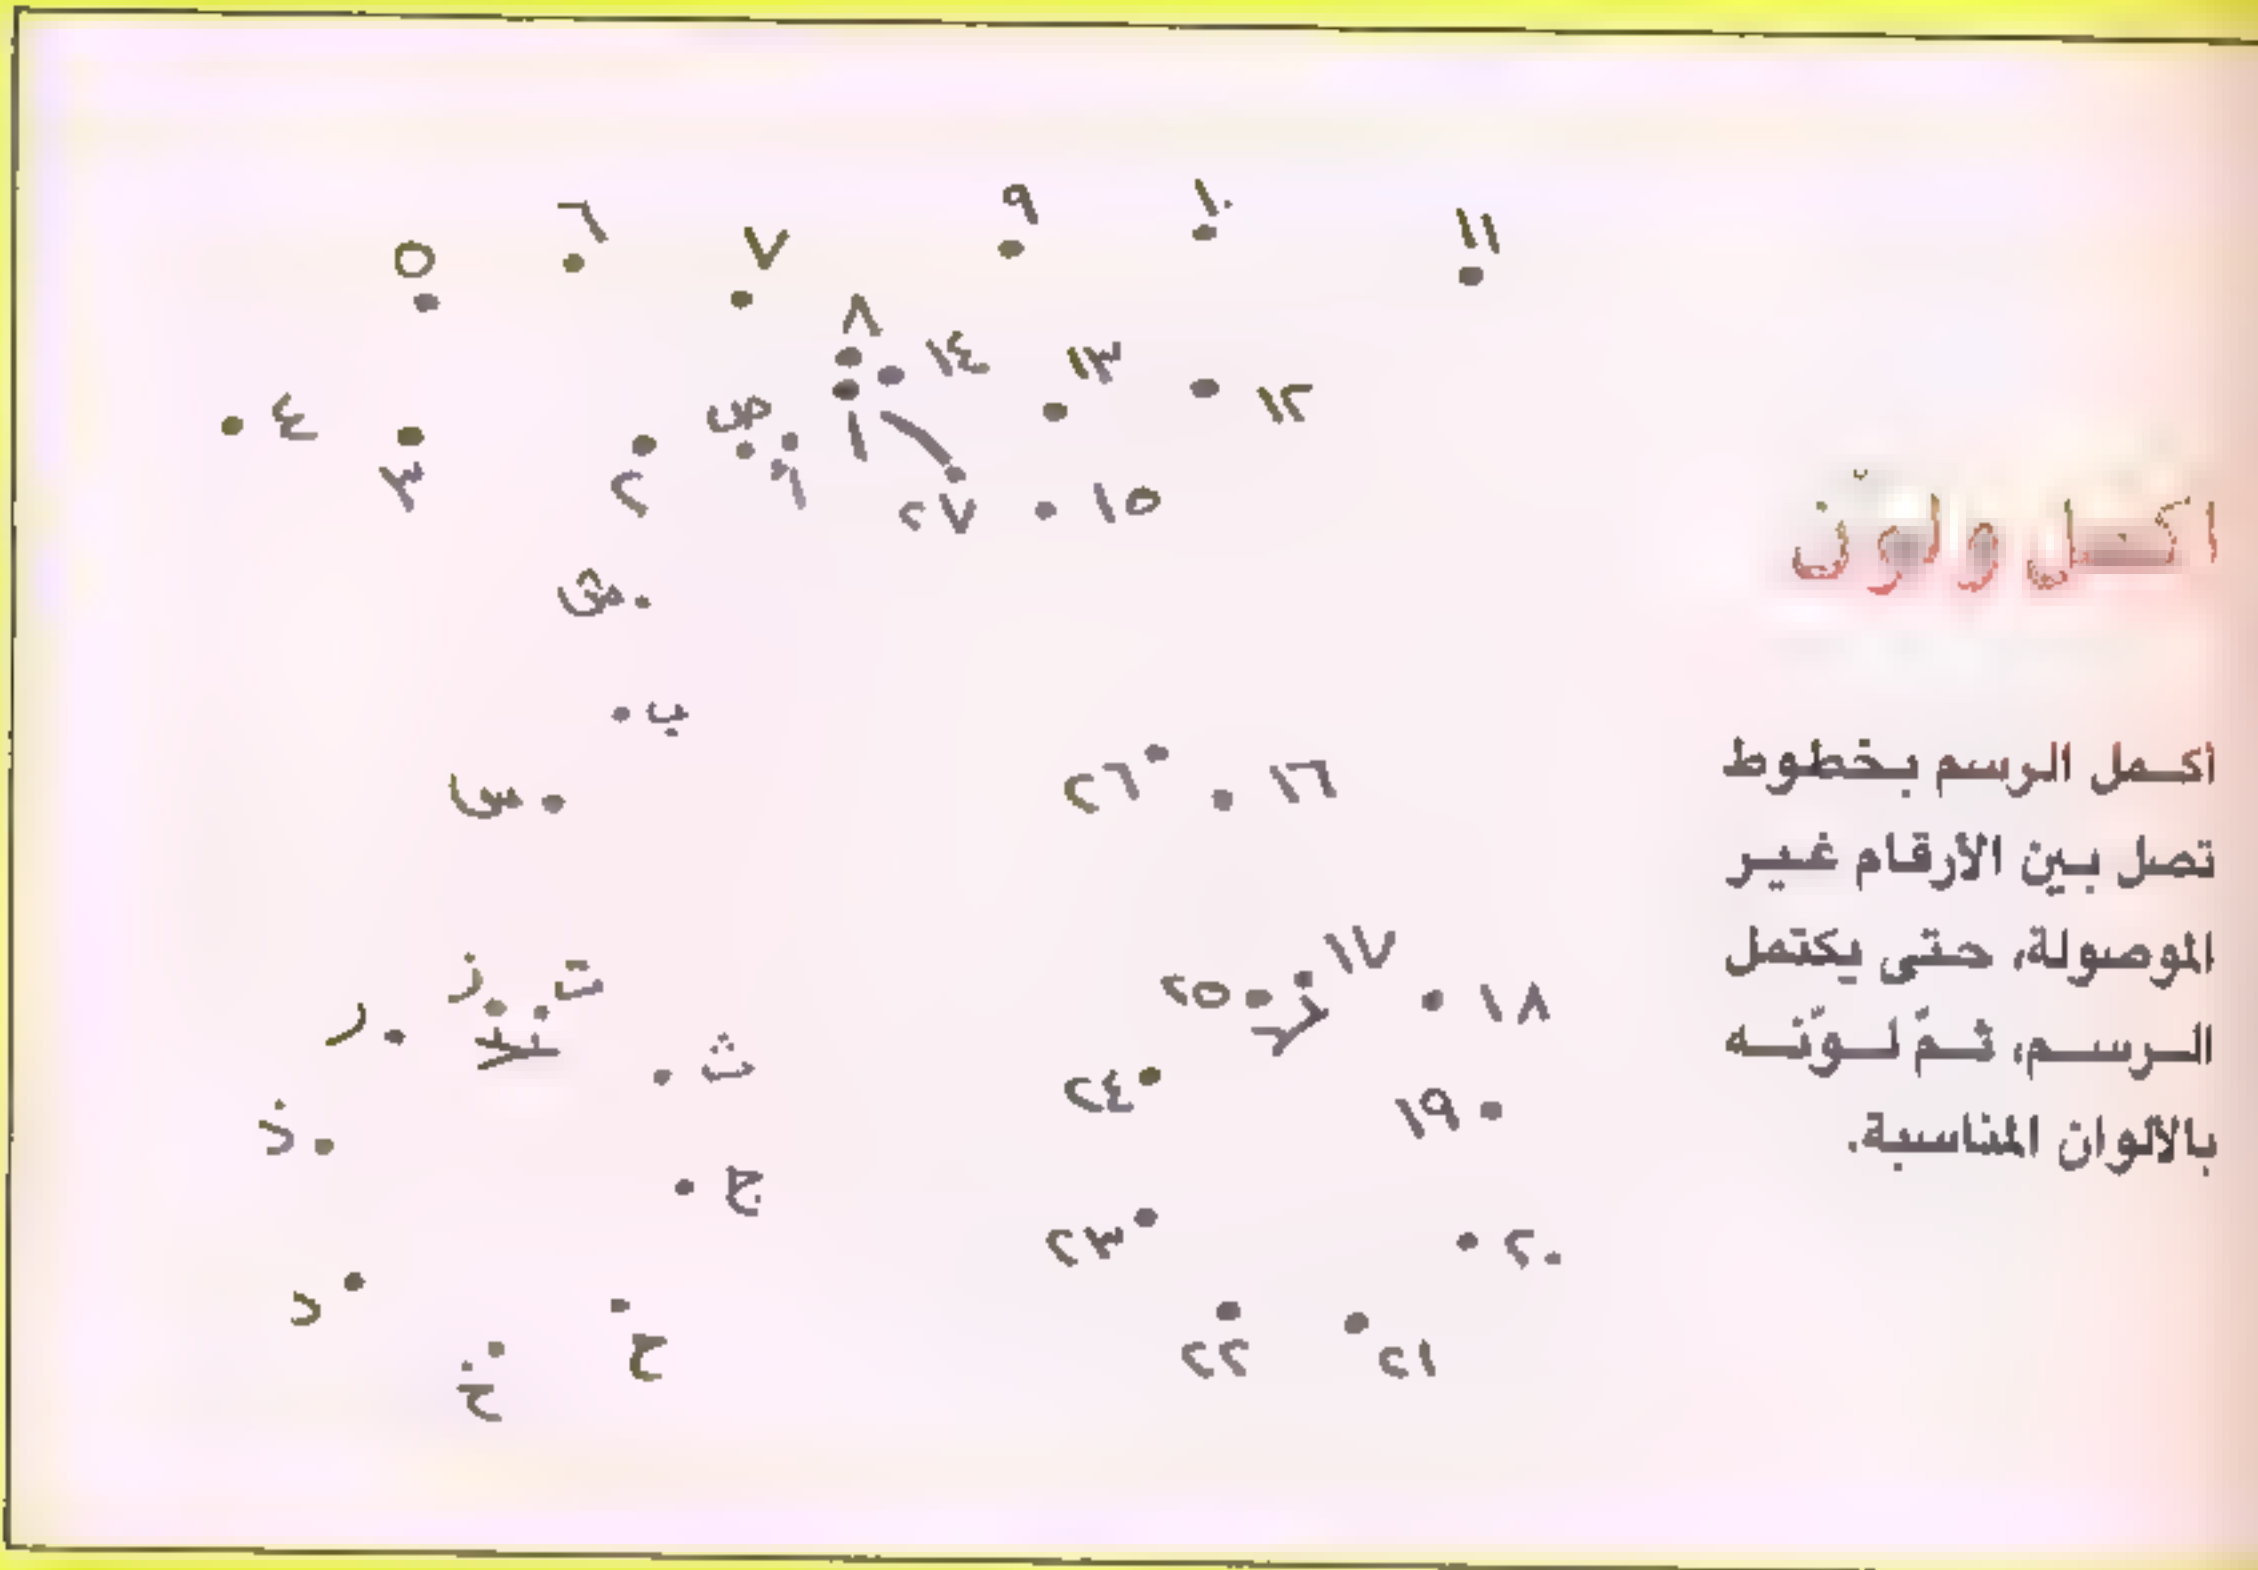 اكمل ولوّن
أكمل الرسم بخطوط
تصل بين الأرقام غير
الموصولة، حتى يكتمل
الرسم، ثمّ لوّنه
بالألوان المناسبة.
٩ ١٠ ١١
٥ ٦ ٧
٨ ١٤ ١٣ ١٢
٤ ٣ ٢ ص أ ١
٢٧ ١٥
ش
ب
س ٢٦ ١٦
ر ز ت ٢٥ ١٧ ١٨
ث ٢٤ ١٩
ذ ج
٢٣ ٢٠
د ح ٢٢ ٢١
خ